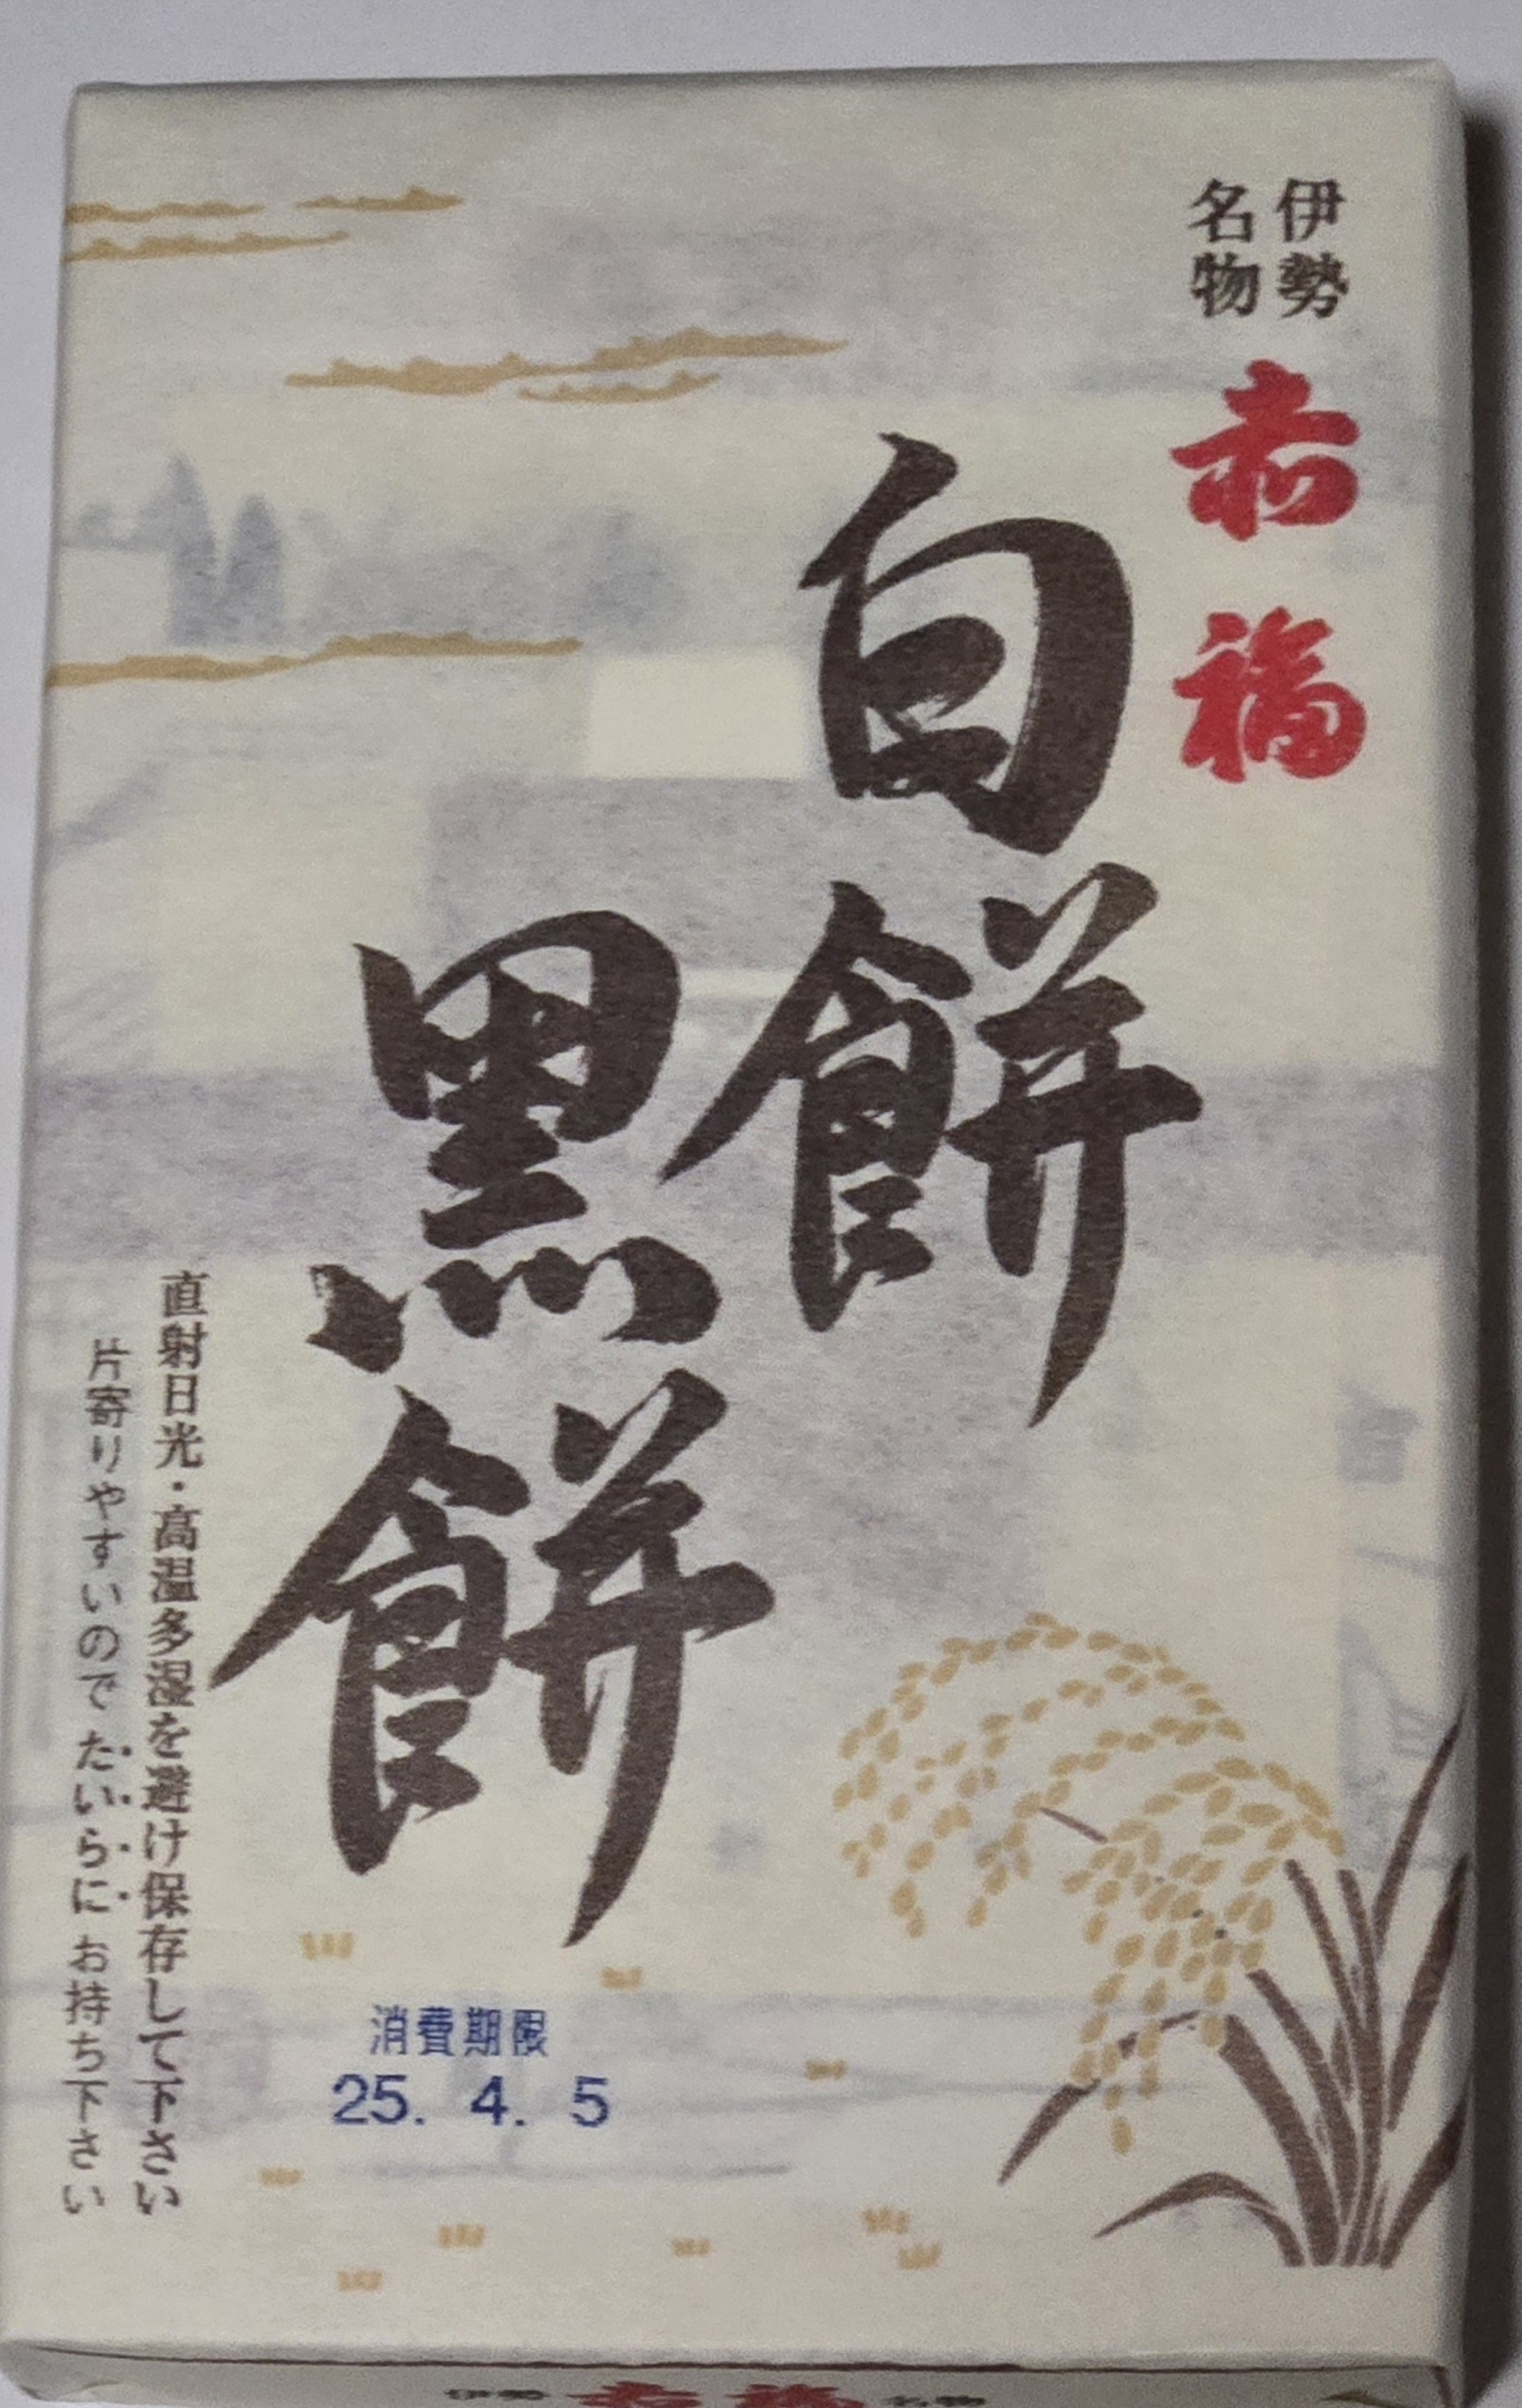 伊勢
名物
赤福
白餅
黒餅
直射日光・高温多湿を避け保存して下さい
片寄りやすいのでたいらにお持ち下さい
消費期限
25. 4. 5
伊勢 赤福 名物